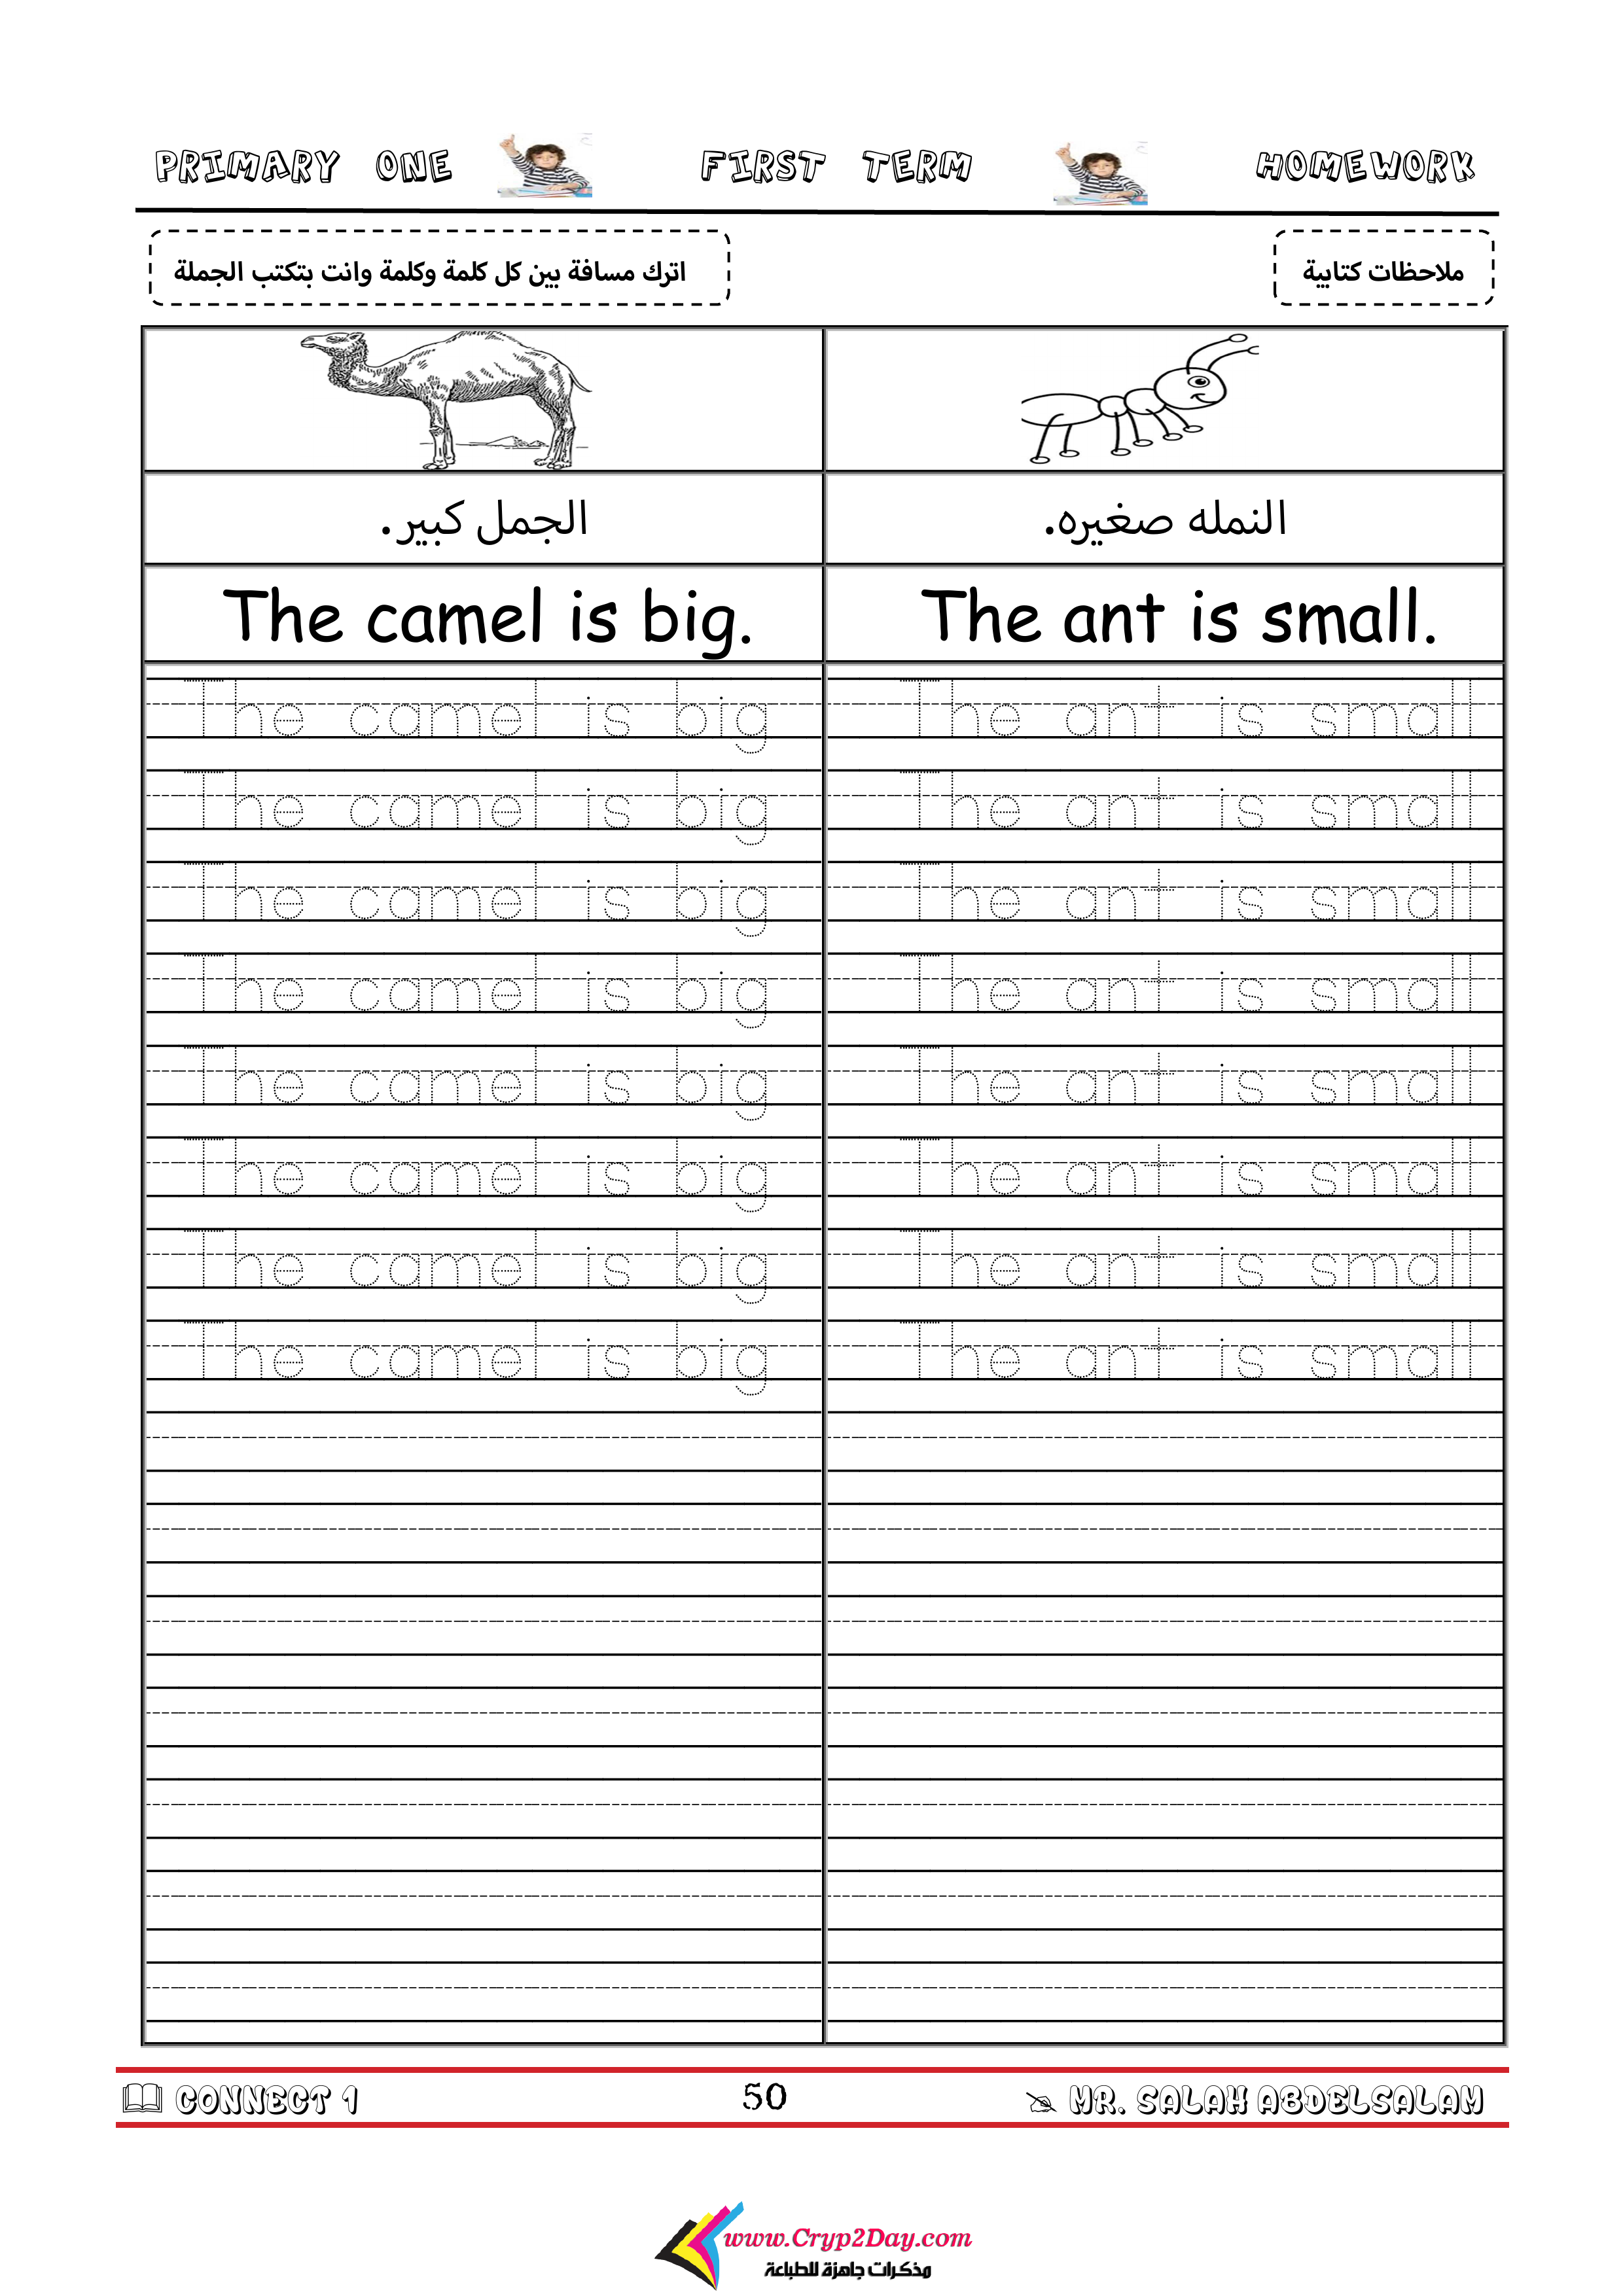 PRIMARY ONE FIRST TERM HOMEWORK
ملاحظات كتابية
اترك مسافة بين كل كلمة وكلمة وانت بتكتب الجملة
الجمل كبير.
النمله صغيره.
The camel is big. The ant is small.
The camel is big The ant is small
The camel is big The ant is small
The camel is big The ant is small
The camel is big The ant is small
The camel is big The ant is small
The camel is big The ant is small
The camel is big The ant is small
The camel is big The ant is small
CONNECT 1 50 MR. SALAH ABDELSALAM
www.Cryp2Day.com
مذكرات جاهزة للطباعة